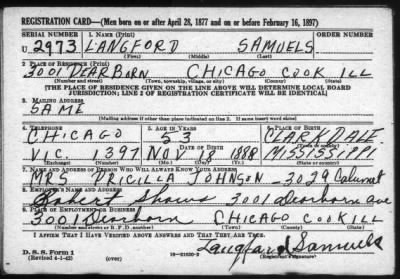 REGISTRATION CARD—(Men born on or after April 28, 1877 and on or before February 16, 1897)
SERIAL NUMBER 1. NAME (Print) ORDER NUMBER
U 2973 LANGFORD SAMUELS
(First) (Middle) (Last)
2. PLACE OF RESIDENCE (Print)
3001 DEARBORN CHICAGO COOK ILL
(Number and street) (Town, township, village, or city) (County) (State)
[THE PLACE OF RESIDENCE GIVEN ON THE LINE ABOVE WILL DETERMINE LOCAL BOARD
JURISDICTION; LINE 2 OF REGISTRATION CERTIFICATE WILL BE IDENTICAL]
3. MAILING ADDRESS
SAME
(Mailing address if other than place indicated on line 2. If same insert word same)
4. TELEPHONE 5. AGE IN YEARS 6. PLACE OF BIRTH
CHICAGO 53 CLARKDALE
DATE OF BIRTH (Town or county)
VIC. 1397 18 1888 MISSISSIPPI
(Exchange) (Number) (Mo.) (Day) (Yr.) (State or country)
7. NAME AND ADDRESS OF PERSON WHO WILL ALWAYS KNOW YOUR ADDRESS
MRS. JOHNSON — 3029 Calumet
8. EMPLOYER'S NAME AND ADDRESS
Robert Shows 3001 Dearborn ave
9. PLACE OF EMPLOYMENT OR BUSINESS
3001 Dearborn CHICAGO COOK ILL
(Number and street or R. F. D. number) (Town) (County) (State)
I AFFIRM THAT I HAVE VERIFIED ABOVE ANSWERS AND THAT THEY ARE TRUE.
D. S. S. Form 1
(Revised 4-1-42) (over) Langford Samuels
(Registrant's signature)